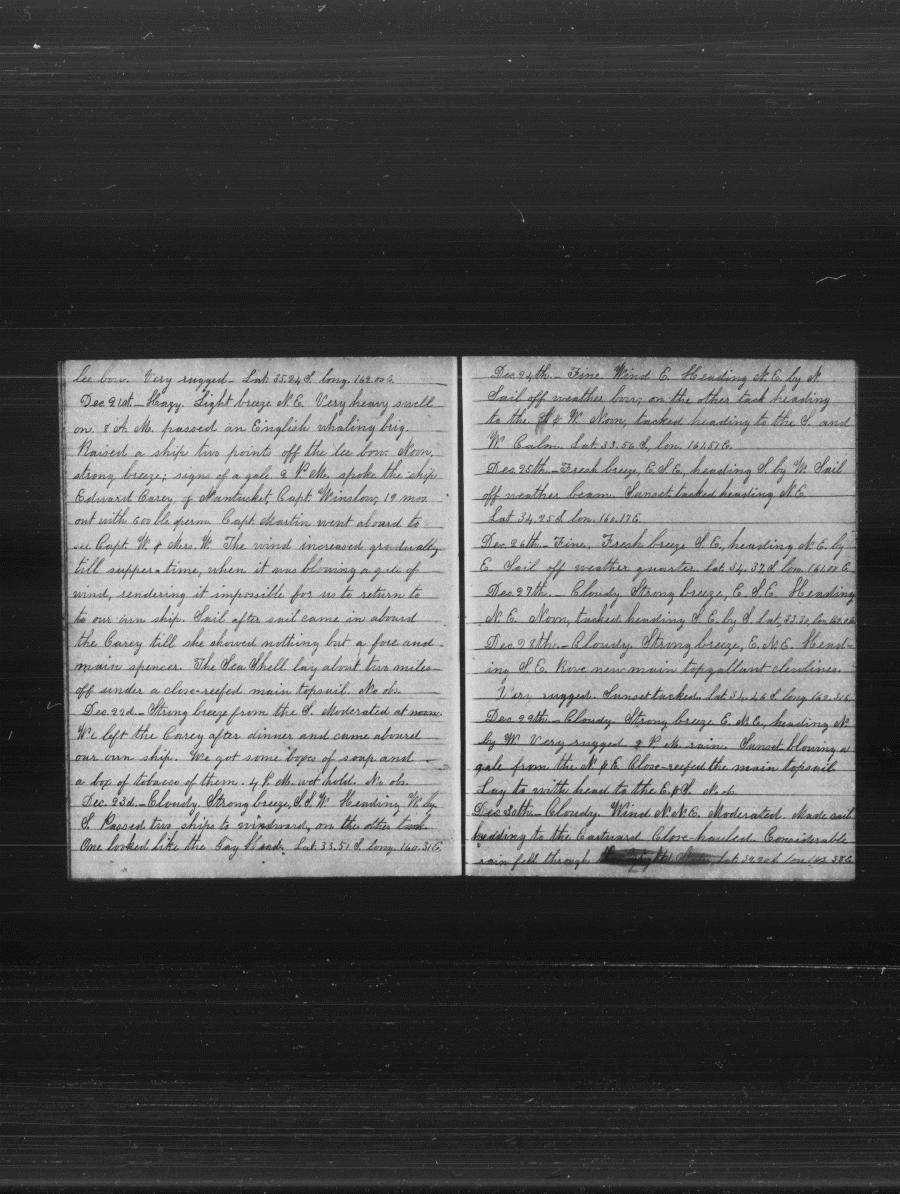 lee bow. Very rugged – Lat. 35.24 S. long. 162.00 E.
Dec. 21st – Hazy. Light breeze N.E. Very heavy swell
on. 8 A.M. passed an English whaling brig.
Raised a ship two points off the lee bow. Noon,
strong breeze; signs of a gale. 2 P.M. spoke the ship
Edward Carey of Nantucket, Capt. Winslow, 19 mos.
out with 600 bls sperm. Capt. Martin went aboard to
see Capt. W. & Mrs. W. The wind increased gradually
till supper-time, when it was blowing a gale of
wind, rendering it impossible for us to return to
our own ship. Sail after sail came in aboard
the Carey till she showed nothing but a fore and
main spencer. The Sea Shell lay about two miles
off under a close-reefed main topsail. No ob.
Dec. 22d – Strong breeze from the S. Moderated at noon.
We left the Carey after dinner and came aboard
our own ship. We got some boxes of soap and
a box of tobacco of them. 4 P.M. wet hold. No ob.
Dec. 23d – Cloudy. Strong breeze, S.S.W. Heading W. by
S. Passed two ships to windward, on the other tack.
One looked like the Gay Head. Lat. 33.51 S. long. 160.31 E.
Dec. 24th. – Fine Wind E. Heading N.E. by N.
Sail off weather bow; on the other tack heading
to the S. & W. Noon, tacked heading to the S. and
W. Calm. Lat 33.56 S, lon. 161.51 E.
Dec. 25th. – Fresh breeze, E.S.E, heading S. by W. Sail
off weather beam. Sunset tacked heading N.E.
Lat 34.25 S lon. 160.17 E.
Dec. 26th – Fine, Fresh breeze S.E., heading N.E. by
E. Sail off weather quarter. Lat. 34.37 S. lon. 161.00 E.
Dec. 27th. – Cloudy Strong breeze, E.S.E. Heading
N.E. Noon, tacked heading S.E. by S. Lat. 33.30, lon.
Dec. 28th. – Cloudy, Strong breeze, E.N.E. Head-
ing S.E. Rove new main topgallant clewlines.
Very rugged. Sunset tacked. Lat. 34.46 S. long. 162.31 E.
Dec. 29th. – Cloudy. Strong breeze E.N.E., heading N.
by W. Very rugged. 2 P.M. rain. Sunset blowing a
gale from the N. & E. Close-reefed the main topsail.
Lay to with head to the E. & S. No ob.
Dec 30th. – Cloudy. Wind N.N.E. Moderated. Made sail
heading to the Eastward. Close-hauled. Considerable
rain fell through Lat. lon.